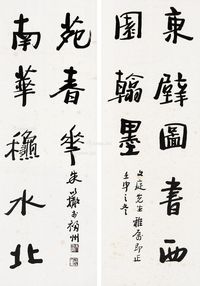 東壁圖書西
園翰墨
先生雅屬即正
壬申之冬
南華龝水北
苑春
朱
州